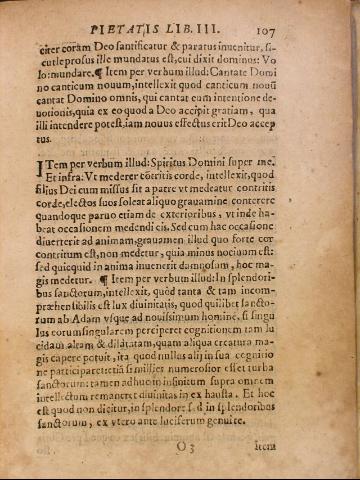 PIETATIS LIB. III. 107
citer coram Deo santificatur & paratus inuenitur, si-
cut leprosus ille mundatus est, cui dixit dominus: Vo
lo: mundare. ¶ Item per verbum illud: Cantate Domi
no canticum nouum, intellexit quod canticum nouũ
cantat Domino omnis, qui cantat cum intentione de-
uotionis, quia ex eo quod a Deo accipit gratiam, qua
illi intendere potest, iam nouus effectus erit Deo accep
tus.
ITem per verbum illud: Spiritus Domini super me.
Et infra: Vt mederer cõtritis corde, intellexit, quod
filius Dei cum missus sit a patre vt medeatur contritis
corde, electos suos soleat aliquo grauamine conterere
quandoque paruo etiam de exterioribus, vt inde ha-
beat occasionem medendi eis. Sed cum hac occasione
diuerterit ad animam, grauamen illud quo forte cor
contritum est, non medetur, quia minus nociuum est:
sed quicquid in anima inuenerit damnosum, hoc ma-
gis medetur. ¶ Item per verbum illud: In splendori-
bus sanctorum, intellexit, quod tanta & tam incom-
præhensibilis est lux diuinitatis, quod quilibet sancto-
rum ab Adam vsque ad nouissimum hominẽ, si singu
lus eorum singularem perciperet cognitionem tam lu
cidam, altam & dilatatam, quam aliqua creatura ma-
gis capere potuit, ita quod nullus alij in sua cognitio
ne participaret, etiã si millies numerosior esset turba
sanctorum: tamen adhuc in infinitum supra omnem
intellectum remaneret diuinitas in ex hausta. Et hoc
est quod non dicitur, in splendore sed in splendoribus
sanctorum, ex vtero ante luciferum genui te.
O 3 Item